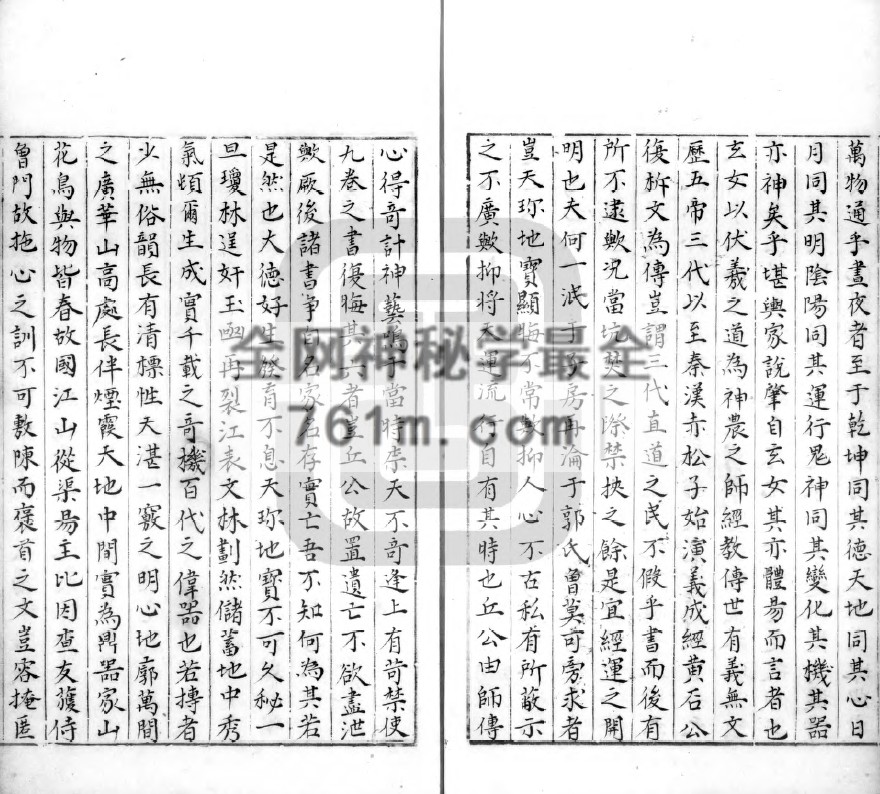 萬物通乎晝夜者至于乾坤同其德天地同其心日
月同其明陰陽同其運行鬼神同其變化其機其器
亦神矣乎堪輿家說肇自玄女其亦體昜而言者也
玄女以伏羲之道為神農之師經教傳世有義無文
歷五帝三代以至秦漢赤松子始演義成經黃石公
復析文為傳豈謂三代直道之民不假乎書而後有
所不逮歟况當坑焚之際禁挾之餘是宜經運之開
明也夫何一泯于阿房再淪于郭氏曾莫可旁求者
豈天珎地寶顯晦不常歟抑人心不古私有所蔽示
之不廣歟抑将天運流行自有其時也丘公由師傳
心得竒計神藝鳴于當時柰天不竒逢上有苛禁使
九巻之書復晦其一者豈丘公故置遺亡不欲盡泄
歟厥後諸書爭自名家名存實亡吾不知何為其若
是然也大德好生發育不息天珎地寶不可久秘一
旦瓊林逞奸玉凾再裂江表文林劃然儲蓄地中秀
氣頓爾生成實千載之竒機百代之偉器也若摶者
少無俗韻長有清標性天湛一竅之明心地廓萬間
之廣華山髙處長伴煙霞天地中間實為鼎器家山
花鳥與物皆春故國江山從渠昜主比因查友蔭侍
曾門故拖心之訓不可敷陳而褒首之文豈容掩匿
全网神秘学最全
761m.com